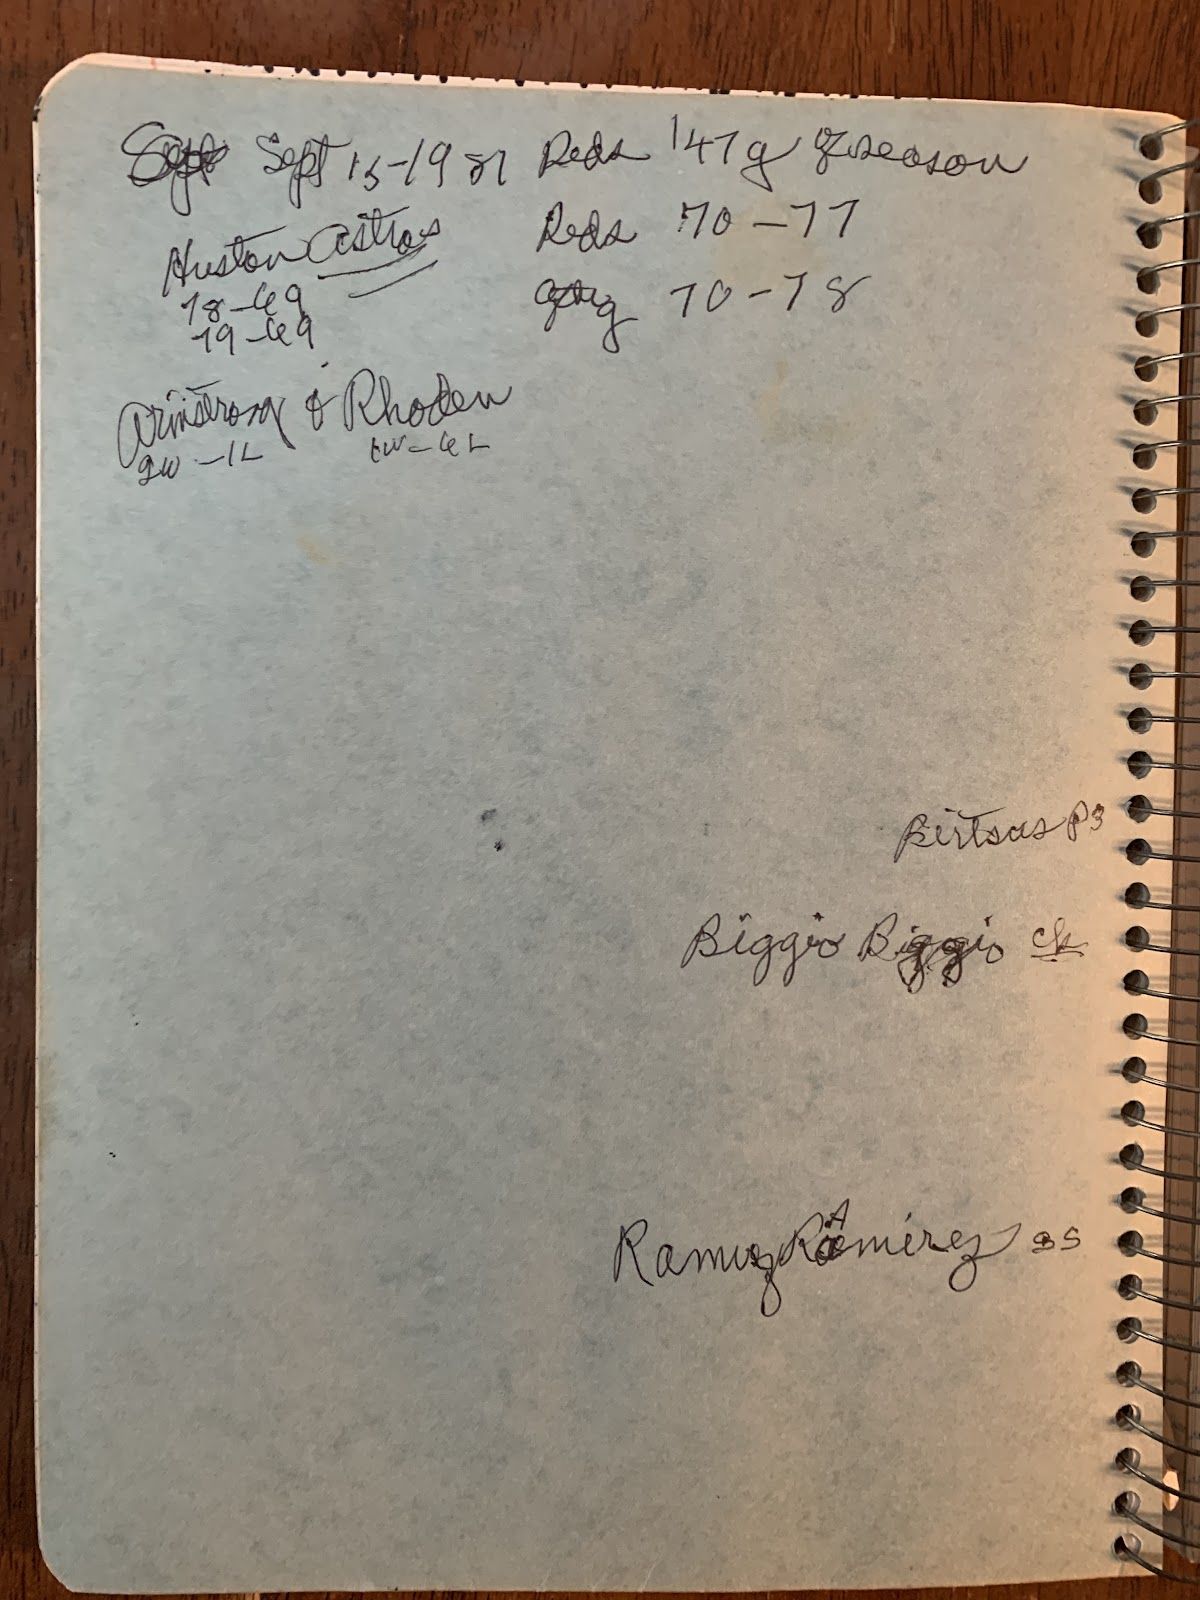 Sept Sept 15-1989 Reds 147 g of season
Huston Astros Reds 70-77
78-69 70-78
79-69
Armstrong & Rhoden
2W-1L 1W-6L
Birtsas P3
Biggio Biggio ck
Ramirez Ramirez SS